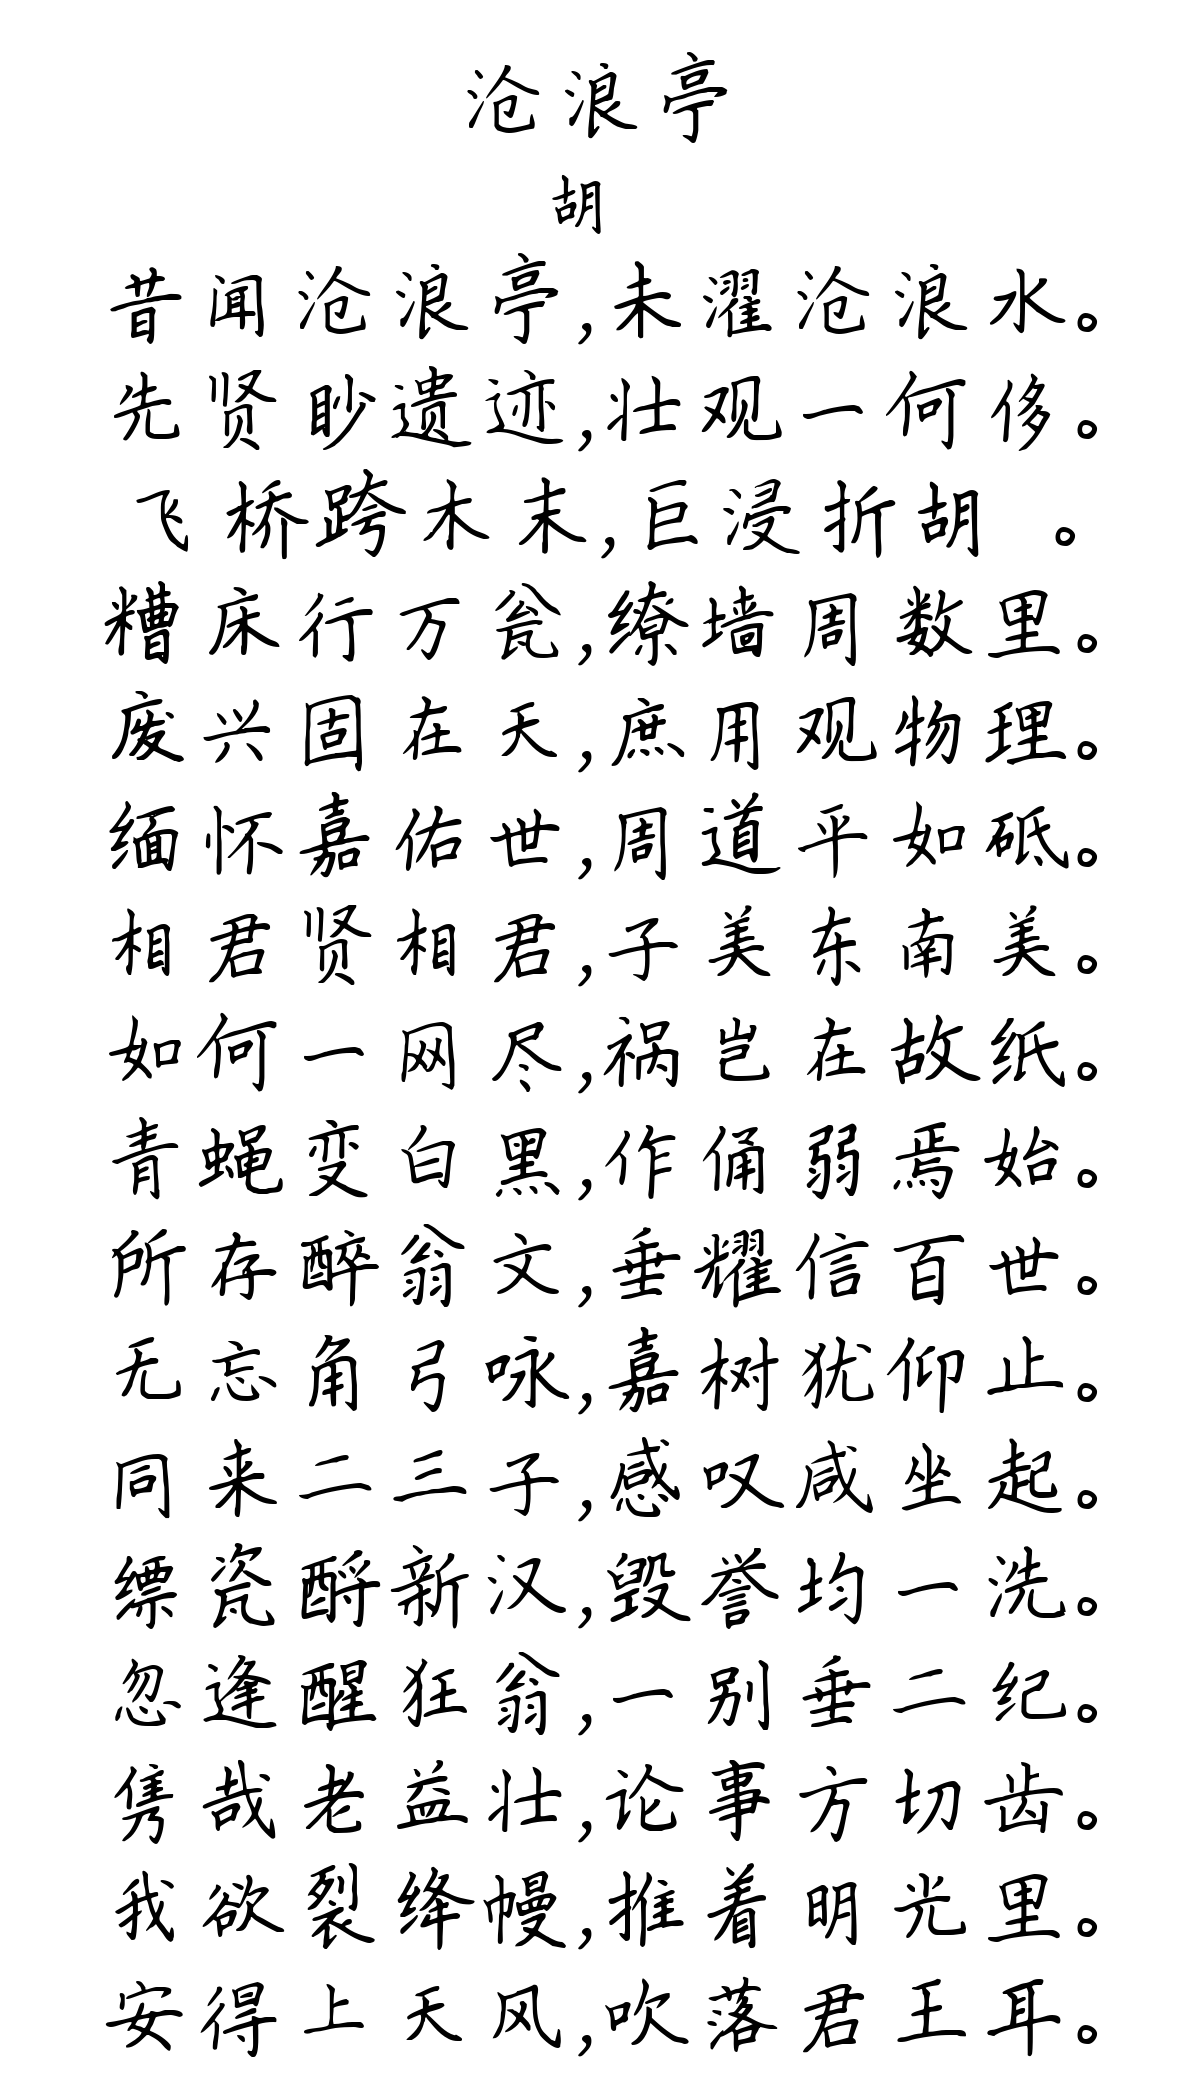 沧浪亭
胡
昔闻沧浪亭,未濯沧浪水。
先贤眇遗迹,壮观一何侈。
飞桥跨木末,巨浸折胡 。
糟床行万瓮,缭墙周数里。
废兴固在天,庶用观物理。
缅怀嘉佑世,周道平如砥。
相君贤相君,子美东南美。
如何一网尽,祸岂在故纸。
青蝇变白黑,作俑弱焉始。
所存醉翁文,垂耀信百世。
无忘角弓咏,嘉树犹仰止。
同来二三子,感叹咸坐起。
缥瓷酹新汉,毁誉均一洗。
忽逢醒狂翁,一别垂二纪。
隽哉老益壮,论事方切齿。
我欲裂绛幔,推着明光里。
安得上天风,吹落君王耳。